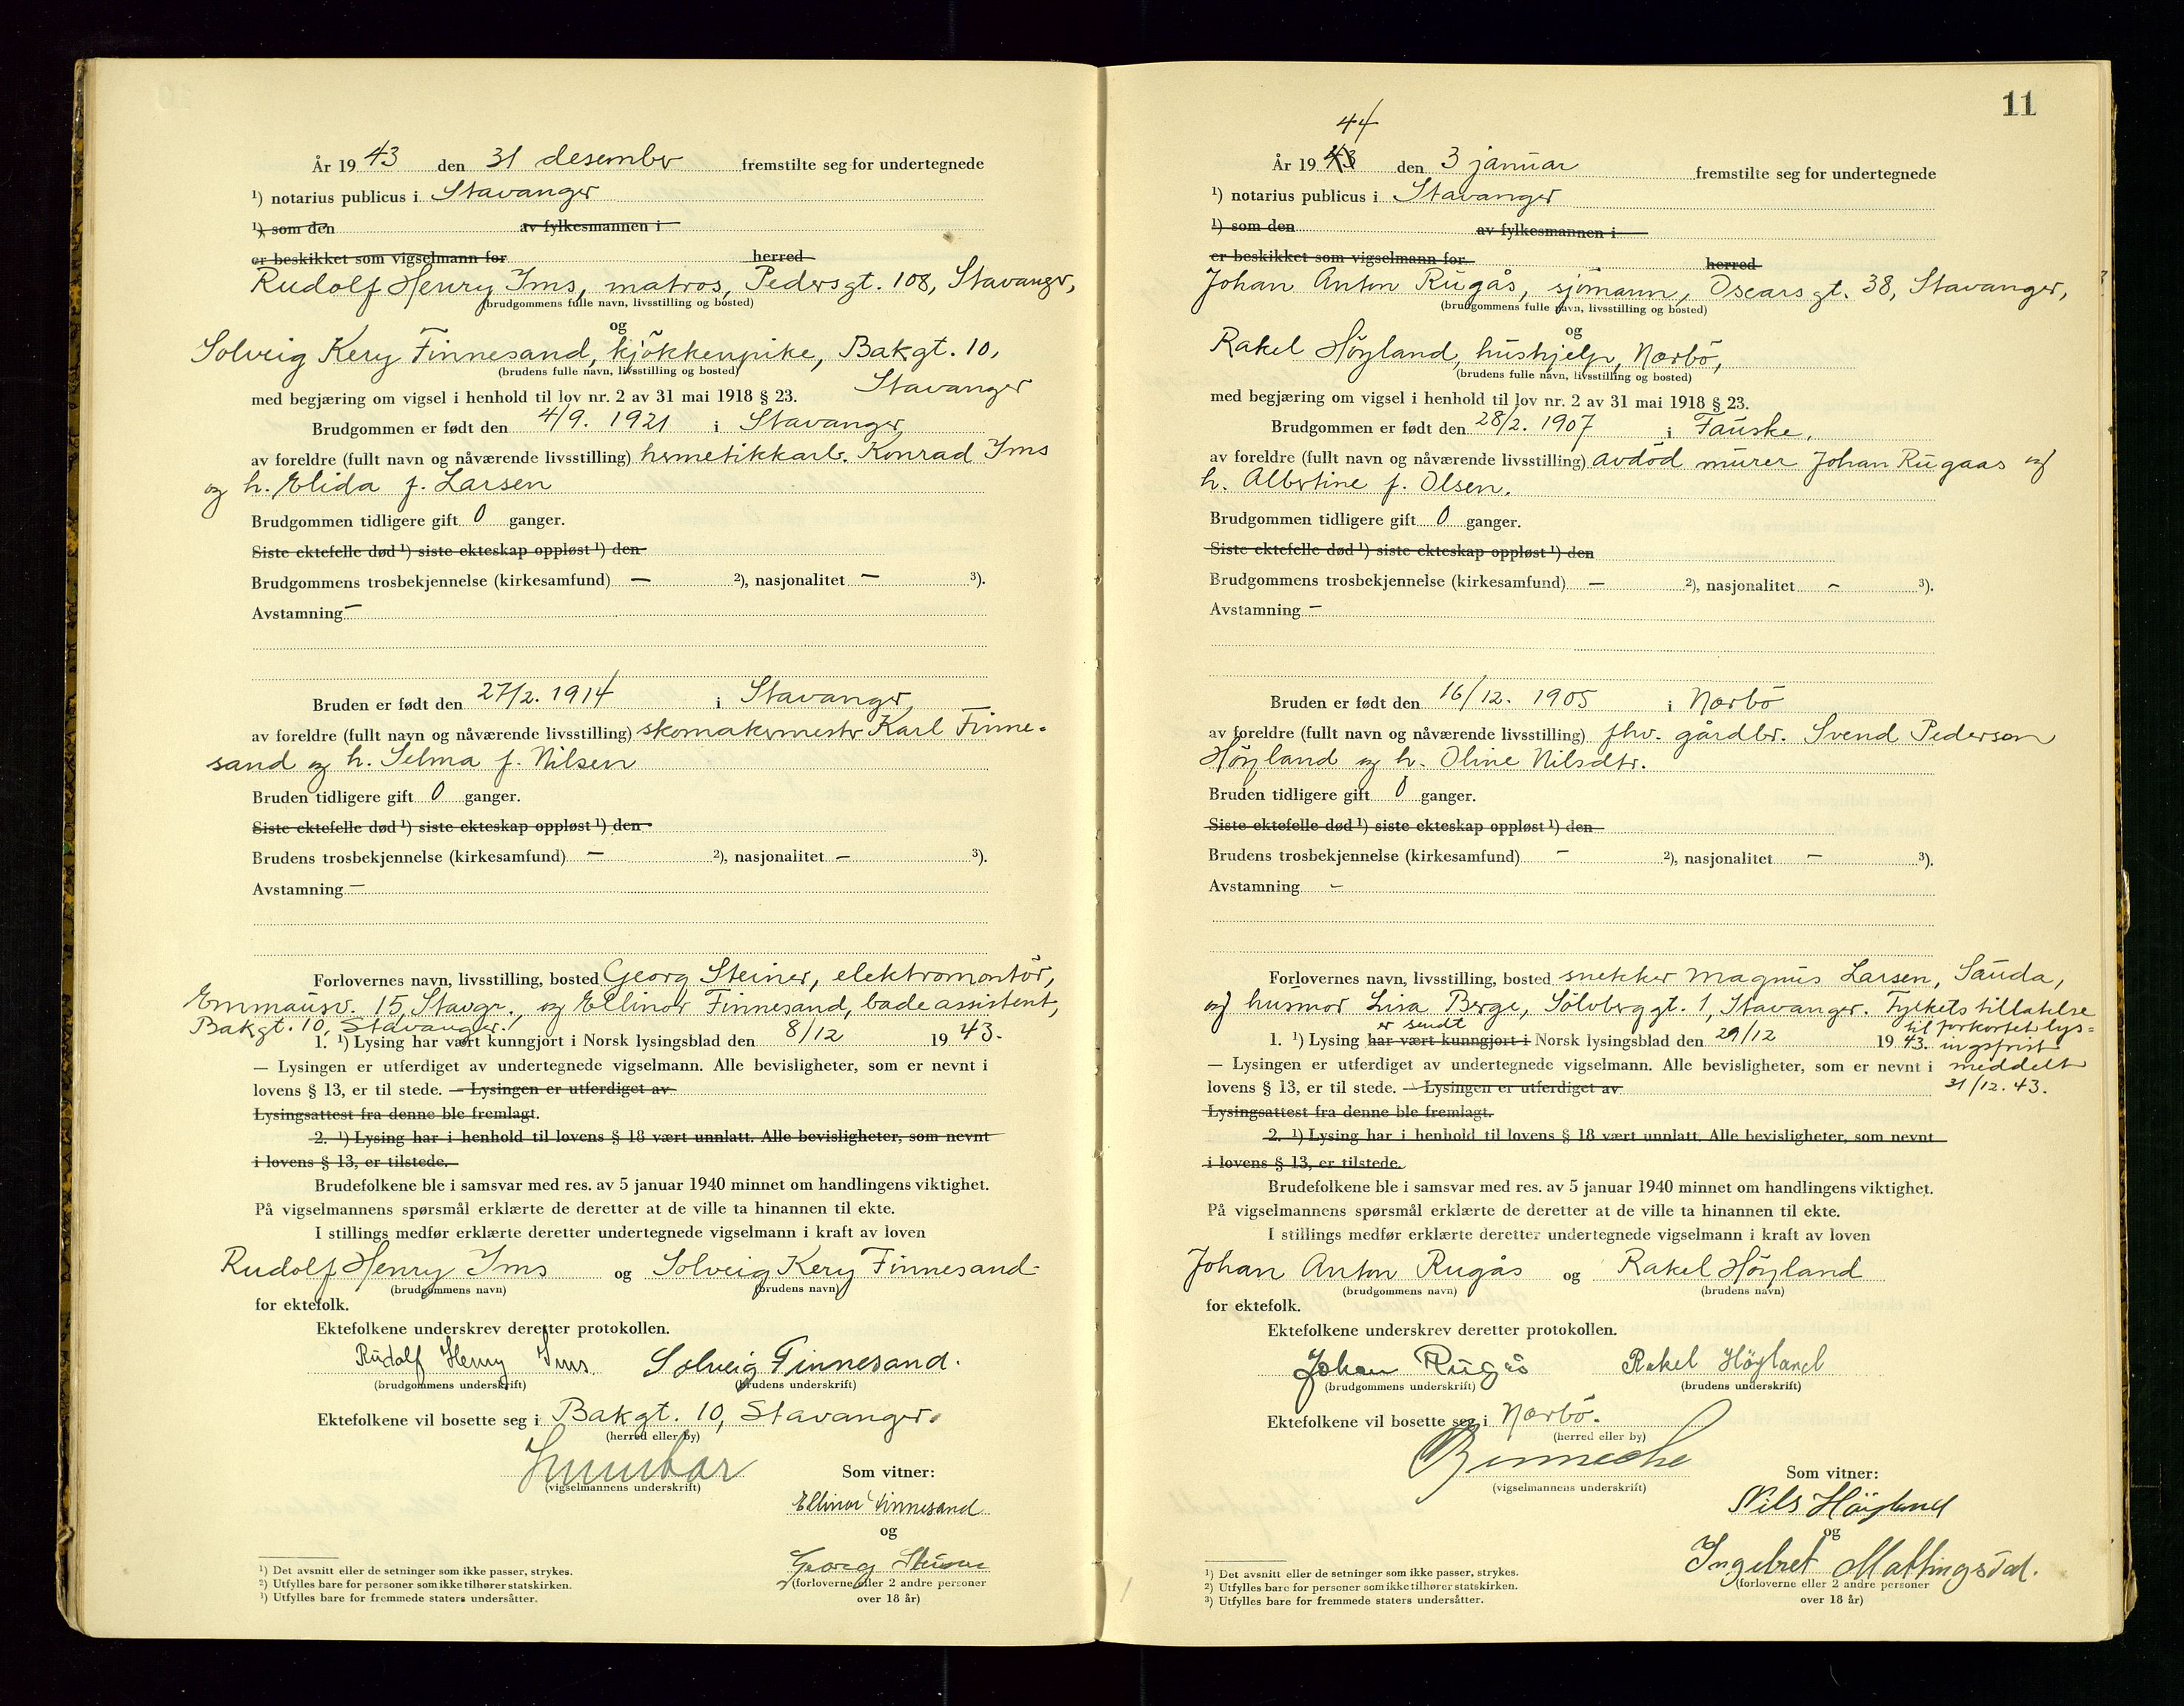 År 19 43 den 31 desember fremstilte seg for undertegnede
¹) notarius publicus i Stavanger
¹) som den av fylkesmannen i
er beskikket som vigselmann for herred
Rudolf Henry Ims, matros, Pedersgt. 108, Stavanger,
(brudgommens fulle navn, livsstilling og bosted)
og
Solveig Kery Finnesand, kjøkkenpike, Bakgt. 10,
(brudens fulle navn, livsstilling og bosted)
Stavanger
med begjæring om vigsel i henhold til lov nr. 2 av 31 mai 1918 § 23.
Brudgommen er født den 4/9. 1921 i Stavanger
av foreldre (fullt navn og nåværende livsstilling) hermetikkarb. Konrad Ims
og h. Elida f. Larsen
Brudgommen tidligere gift 0 ganger.
Siste ektefelle død ¹) siste ekteskap oppløst ¹) den
Brudgommens trosbekjennelse (kirkesamfund) — ²), nasjonalitet — ³).
Avstamning —
Bruden er født den 27/2. 1914 i Stavanger
av foreldre (fullt navn og nåværende livsstilling) skomakermester Karl Finne-
sand og h. Selma f. Nilsen
Bruden tidligere gift 0 ganger.
Siste ektefelle død ¹) siste ekteskap oppløst ¹) den
Brudens trosbekjennelse (kirkesamfund) — ²), nasjonalitet — ³).
Avstamning —
Forlovernes navn, livsstilling, bosted Georg Steiner, elektromontör,
Emmausv. 15, Stavgr., og Ellinor Finnesand, badeassistent,
Bakgt. 10, Stavanger.
1. ¹) Lysing har vært kunngjort i Norsk lysingsblad den 8/12 19 43.
— Lysingen er utferdiget av undertegnede vigselmann. Alle bevisligheter, som er nevnt i
lovens § 13, er til stede. — Lysingen er utferdiget av
Lysingsattest fra denne ble fremlagt.
2. ¹) Lysing har i henhold til lovens § 18 vært unnlatt. Alle bevisligheter, som nevnt
i lovens § 13, er tilstede.
Brudefolkene ble i samsvar med res. av 5 januar 1940 minnet om handlingens viktighet.
På vigselmannens spørsmål erklærte de deretter at de ville ta hinannen til ekte.
I stillings medfør erklærte deretter undertegnede vigselmann i kraft av loven
Rudolf Henry Ims og Solveig Kery Finnesand
(brudgommens navn) (brudens navn)
for ektefolk.
Ektefolkene underskrev deretter protokollen.
Rudolf Henry Ims. Solveig Finnesand.
(brudgommens underskrift) (brudens underskrift)
Ektefolkene vil bosette seg i Bakgt. 10, Stavanger.
(herred eller by)
(vigselmannens underskrift)
Som vitner:
Ellinor Finnesand
og
Georg Steiner
(forloverne eller 2 andre personer
over 18 år)
¹) Det avsnitt eller de setninger som ikke passer, strykes.
²) Utfylles bare for personer som ikke tilhører statskirken.
¹) Utfylles bare for fremmede staters undersåtter.
11
44
År 19 43 den 3 januar fremstilte seg for undertegnede
¹) notarius publicus i Stavanger
¹) som den av fylkesmannen i
er beskikket som vigselmann for herred
Johan Anton Rugås, sjömann, Oscarsgt. 38, Stavanger,
(brudgommens fulle navn, livsstilling og bosted)
og
Rakel Höyland, hushjelp, Nærbö,
(brudens fulle navn, livsstilling og bosted)
med begjæring om vigsel i henhold til lov nr. 2 av 31 mai 1918 § 23.
Brudgommen er født den 28/2. 1907 i Fauske.
av foreldre (fullt navn og nåværende livsstilling) avdöd murer Johan Rugaas og
h. Albertine f. Olsen.
Brudgommen tidligere gift 0 ganger.
Siste ektefelle død ¹) siste ekteskap oppløst ¹) den
Brudgommens trosbekjennelse (kirkesamfund) — ²), nasjonalitet — ³).
Avstamning —
Bruden er født den 16/12. 1905 i Nærbö
av foreldre (fullt navn og nåværende livsstilling) fhv. gårdbr. Svend Pederson
Höyland og h. Oline Nilsdtr.
Bruden tidligere gift 0 ganger.
Siste ektefelle død ¹) siste ekteskap oppløst ¹) den
Brudens trosbekjennelse (kirkesamfund) — ²), nasjonalitet — ³).
Avstamning —
Forlovernes navn, livsstilling, bosted snekker Magnus Larsen, Sauda,
og husmor Lisa Berge, Sölvberggt. 1, Stavanger. Fylkets tillatelse
er sendt til forkortet lys-
1. ¹) Lysing har vært kunngjort i Norsk lysingsblad den 29/12 19 43. ingsfrist
— Lysingen er utferdiget av undertegnede vigselmann. Alle bevisligheter, som er nevnt i meddelt
lovens § 13, er til stede. — Lysingen er utferdiget av 31/12. 43.
Lysingsattest fra denne ble fremlagt.
2. ¹) Lysing har i henhold til lovens § 18 vært unnlatt. Alle bevisligheter, som nevnt
i lovens § 13, er tilstede.
Brudefolkene ble i samsvar med res. av 5 januar 1940 minnet om handlingens viktighet.
På vigselmannens spørsmål erklærte de deretter at de ville ta hinannen til ekte.
I stillings medfør erklærte deretter undertegnede vigselmann i kraft av loven
Johan Anton Rugås og Rakel Höyland
(brudgommens navn) (brudens navn)
for ektefolk.
Ektefolkene underskrev deretter protokollen.
Johan Rugås Rakel Höyland
(brudgommens underskrift) (brudens underskrift)
Ektefolkene vil bosette seg i Nærbö.
(herred eller by)
(vigselmannens underskrift)
Som vitner:
Nils Höyland
og
Ingebret
(forloverne eller 2 andre personer
over 18 år)
¹) Det avsnitt eller de setninger som ikke passer, strykes.
²) Utfylles bare for personer som ikke tilhører statskirken.
³) Utfylles bare for fremmede staters undersåtter.